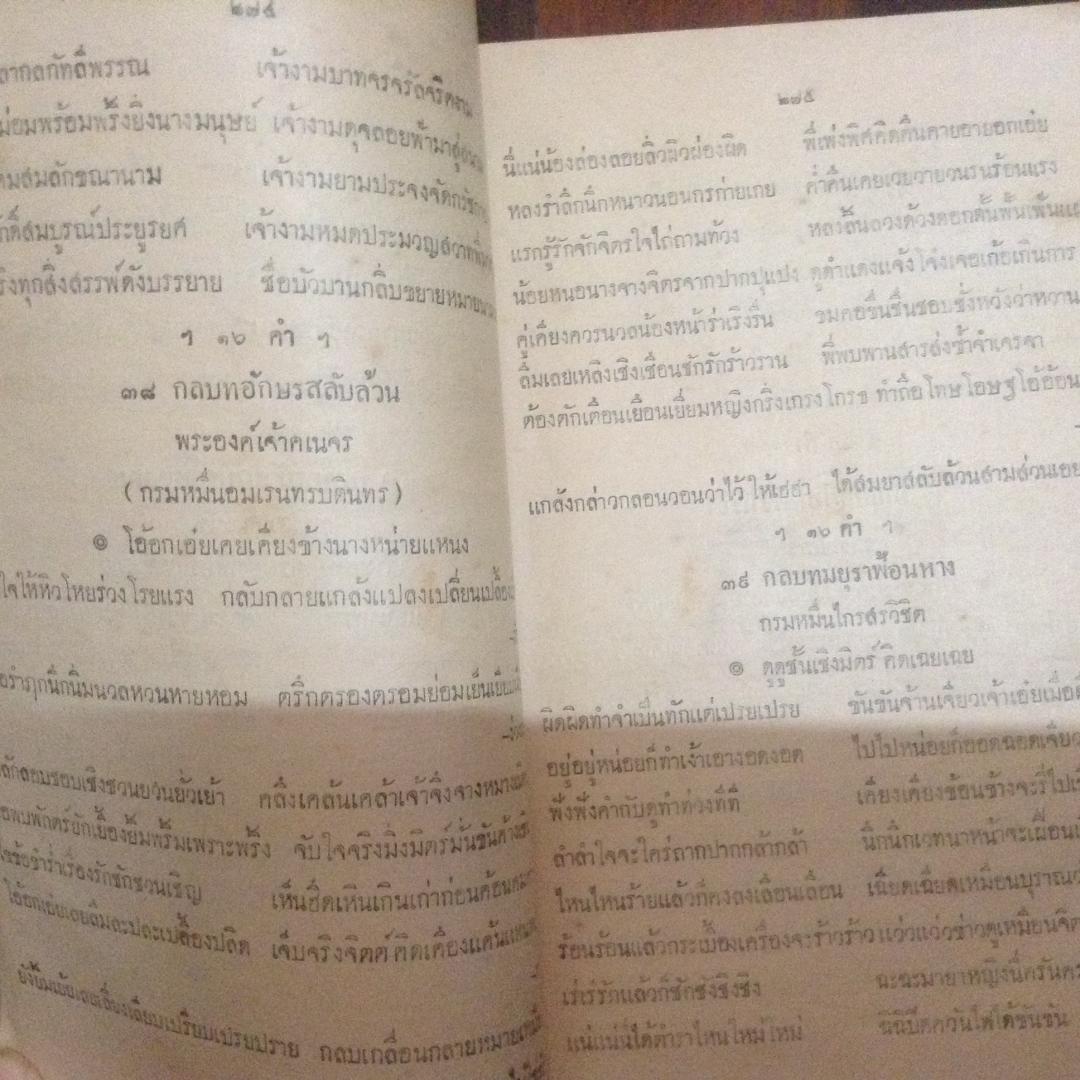 ๒๗๔
เจ้างามบาทจรจรัลจริตงาม
พร้อมพริ้งยิ่งนางมนุษย์ เจ้างามดุจลอยฟ้ามาสู่
สมลักขณานาม เจ้างามยามประจงจัด
สมบูรณ์ประยูรยศ เจ้างามหมดประมวญสวาท
ทุกสิ่งสรรพ์ดังบรรยาย ชื่อบัวบานกลิ่บขยายหมาย
ฯ ๑๖ คำ ฯ
๓๘ กลบทอักษรสลับล้วน
พระองค์เจ้าคเนจร
(กรมหมื่นอมเรนทรบดินทร)
๏ โอ้อกเอ๋ยเคยเคียงข้างนางหน่ายแหนง
ใจให้หิวโหยร่วงโรยแรง กลับกลายแกล้งแปลงเปลี่ยนเปลื้อง
นึกนิ่มนวลหวนหายหอม ตริกตรองตรอมย่อมเย็น
ลอบชอบเชิงชวนยวนยั่วเย้า คลึงเคล้นเคล้าเจ้าจึงจาง
พบพักตร์ยักเยื้องยิ้มพริ้มเพราะพริ้ง จับใจจริงมิ่งมิตร์มั่น
ร่ำเรื่องรักชักชวนเชิญ เห็นฮึดเหินเกินเก่าก่อน
โอ้อกเอ๋ยเลยลืมละปละเปลื้องปลิด เจ็บจริงจิตต์คิดเคืองแค้น
เปรียบเปรยปราย กลบเกลื่อนกลายหมาย
๒๗๕
นี่แน่น้องล่องลอยลิ่วผิวผ่องผิด พี่เพ่งพิศคิดคืนคายอายอกเอ๋ย
หลงรำลึกนึกหนาวนอนกรก่ายเกย ค่ำคืนเคยเวยวายวนรนร้อนแรง
แรกรู้รักจักจิตรใจไถ่ถามท้วง
น้อยหนอนางจางจิตรจากปากปูแปง ดูดำแดงแจ้งโจ่งเจอเก้อเกินการ
คู่เคียงควรนวลน้องหน้าร่าเริงรื่น ชมคอชื่นชื่นชอบชั่งหวังว่าหวาน
ลืมเลยเหลิงเชิงเชือนชักรักร้าวราน พี่พบพานสารส่งซ้ำจำเจรจา
ต้องตักเตือนเยือนเยี่ยมหญิงกริ่งเกรงโกรธ ทำถือโทษโอษฐโอ้อ้อน
แกล้งกล่าวกลอนวอนว่าไว้ให้เฮฮา ได้สมยาสลับล้วนสามส่วนเอย
ฯ ๑๖ คำ ฯ
๓๙ กลบทมยุราฟ้อนหาง
กรมหมื่นไกรสรวิชิต
๏ ดูดูชั้นเชิงมิตร์คิดเฉยเฉย
ผิดผิดทำจำเป็นทักแต่เปรยเปรย ขันขันจ้านเจียวเจ้าเอ๋ยเมื่อ
อยู่อยู่หน่อยก็ทำเง้าเอางอดงอด ไปไปหน่อยก็ออดฉอด
ฟังฟังคำกับดูทำท่วงทีที เคียงเคียงช้อนข้างจะรี่ไป
ลำลำใจจะใคร่ถากปากกล้ากล้า นึกนึกเวทนาหน้าจะเผือน
ไหนไหนร้ายแล้วก็คงลงเลื่อนเลื่อน เฉียดเฉียดเหมือนบุราณ
ร้อนร้อนแล้วกระเบื้องเครื่องจะร้าวร้าว แว่วแว่วข่าวดูเหมือน
เร่เร่รักแล้วก็ชักชังชิงชิง ฉะฉะมายาหญิงนี่ครัน
แน่แน่นี่ได้ตำราไหนใหม่ใหม่ นี่นี่ปิดควันไฟได้ขันขัน